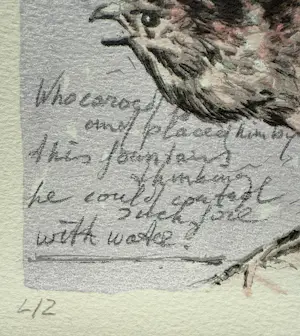 Who caroged
and placed him by
this fountain
thinking
he could control
such fire
with water?
L/2